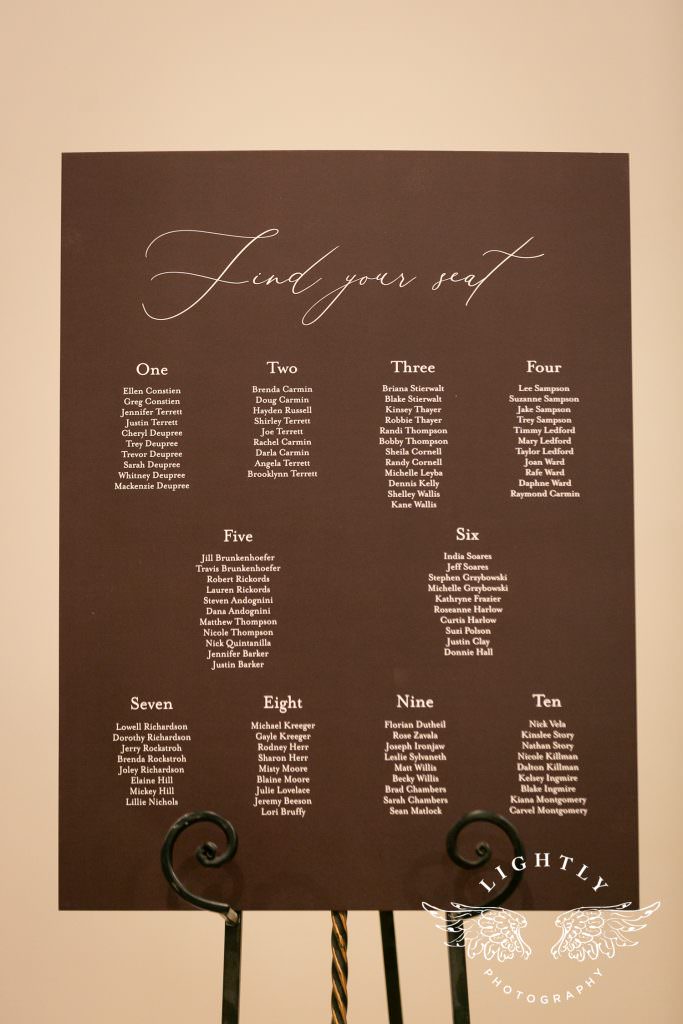 Find your seat
One
Ellen Constien
Greg Constien
Jennifer Terrett
Justin Terrett
Cheryl Deupree
Trey Deupree
Trevor Deupree
Sarah Deupree
Whitney Deupree
Mackenzie Deupree
Two
Brenda Carmin
Doug Carmin
Hayden Russell
Shirley Terrett
Joe Terrett
Rachel Carmin
Darla Carmin
Angela Terrett
Brooklynn Terrett
Three
Briana Stierwalt
Blake Stierwalt
Kinsey Thayer
Robbie Thayer
Randi Thompson
Bobby Thompson
Sheila Cornell
Randy Cornell
Michelle Leyba
Dennis Kelly
Shelley Wallis
Kane Wallis
Four
Lee Sampson
Suzanne Sampson
Jake Sampson
Trey Sampson
Timmy Ledford
Mary Ledford
Taylor Ledford
Joan Ward
Rafe Ward
Daphne Ward
Raymond Carmin
Five
Jill Brunkenhoefer
Travis Brunkenhoefer
Robert Rickords
Lauren Rickords
Steven Andognini
Dana Andognini
Matthew Thompson
Nicole Thompson
Nick Quintanilla
Jennifer Barker
Justin Barker
Six
India Soares
Jeff Soares
Stephen Grzybowski
Michelle Grzybowski
Kathryne Frazier
Roseanne Harlow
Curtis Harlow
Suzi Polson
Justin Clay
Donnie Hall
Seven
Lowell Richardson
Dorothy Richardson
Jerry Rockstroh
Brenda Rockstroh
Joley Richardson
Elaine Hill
Mickey Hill
Lillie Nichols
Eight
Michael Kreeger
Gayle Kreeger
Rodney Herr
Sharon Herr
Misty Moore
Blaine Moore
Julie Lovelace
Jeremy Beeson
Lori Bruffy
Nine
Florian Dutheil
Rose Zavala
Joseph Ironjaw
Leslie Sylvaneth
Matt Willis
Becky Willis
Brad Chambers
Sarah Chambers
Sean Matlock
Ten
Nick Vela
Kinslee Story
Nathan Story
Nicole Killman
Dalton Killman
Kelsey Ingmire
Blake Ingmire
Kiana Montgomery
Carvel Montgomery
LIGHTLY
PHOTOGRAPHY